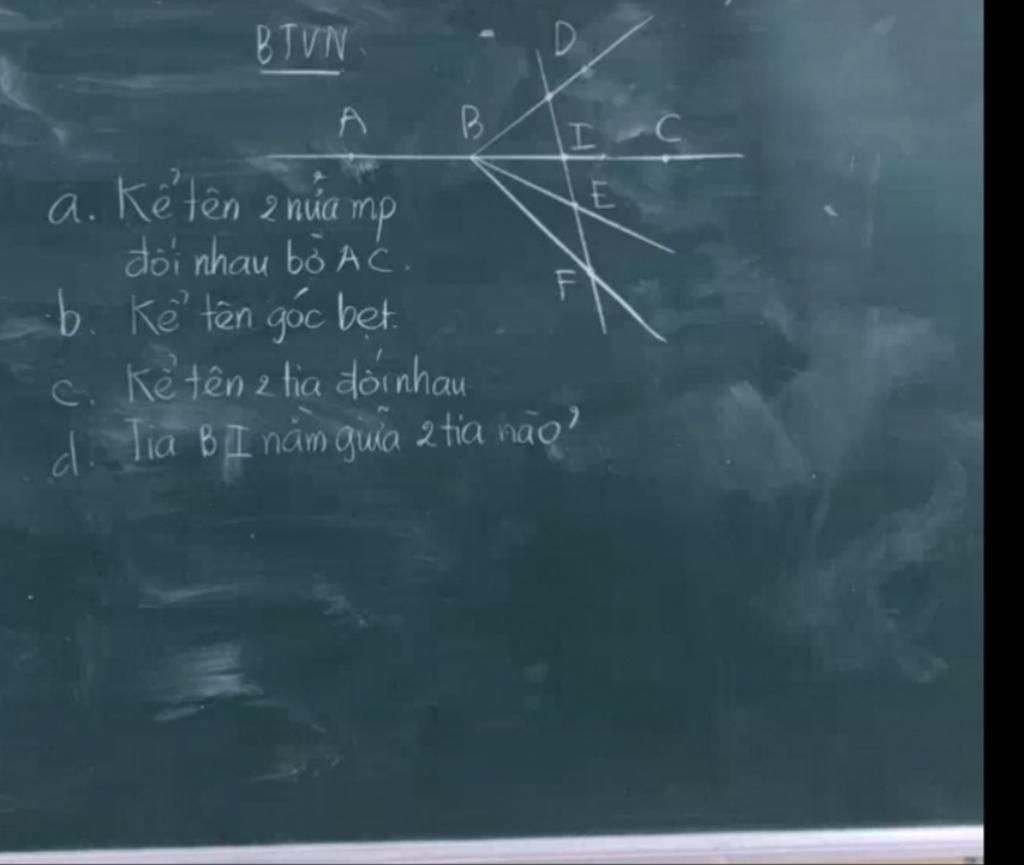 BTVN
D
A B I C
E
F
a. Kể tên 2 nửa mp
đối nhau bờ AC.
b. Kể tên góc bẹt.
c. Kể tên 2 tia đối nhau
d. Tia BI nằm giữa 2 tia nào?